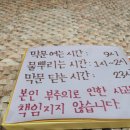 막문 여는 시간: 9시
물뿌리는 시간: 1시~2시
막문 닫는 시간: 23시
본인 부주의로 인한 사고
책임지지 않습니다